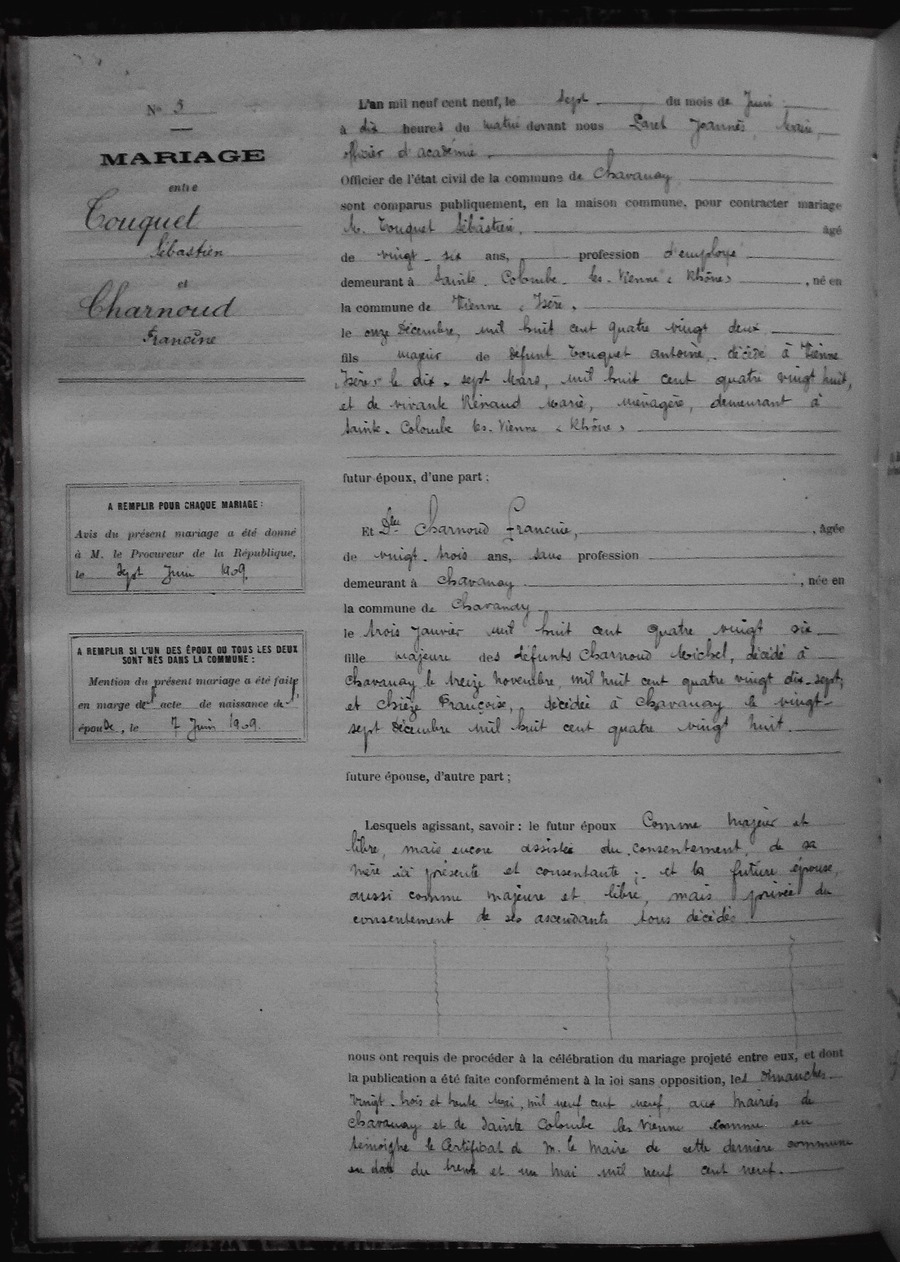 N° 5
MARIAGE
entre
Touquet
Sébastien
et
Charnoud
Francine
A REMPLIR POUR CHAQUE MARIAGE :
Avis du présent mariage a été donné
à M. le Procureur de la République,
le Sept Juin 1909.
A REMPLIR SI L'UN DES ÉPOUX OU TOUS LES DEUX
SONT NÉS DANS LA COMMUNE :
Mention du présent mariage a été faite
en marge de l'acte de naissance de l'
épouse, le 7 Juin 1909.
L'an mil neuf cent neuf, le Sept du mois de Juin
à dix heures du matin devant nous Paret Joannès, Maire,
officier d'académie
Officier de l'état civil de la commune de Chavanay
sont comparus publiquement, en la maison commune, pour contracter mariage
M. Touquet Sébastien, âgé
de vingt-six ans, profession d'employé
demeurant à Sainte-Colombe-les-Vienne (Rhône), né en
la commune de Vienne (Isère),
le onze Décembre, mil huit cent quatre vingt deux,
fils majeur de défunt Touquet antoine, décédé à Vienne
(Isère) le dix-sept Mars, mil huit cent quatre vingt huit,
et de vivante Rénaud Marie, ménagère, demeurant à
Sainte-Colombe les-Vienne (Rhône)
futur époux, d'une part ;
Et Dlle Charnoud Francine, âgée
de vingt-trois ans, sans profession
demeurant à Chavanay, née en
la commune de Chavanay
le trois Janvier mil huit cent quatre vingt six
fille majeure des défunts Charnoud Michel, décédé à
Chavanay le treize Novembre, mil huit cent quatre vingt dix-sept,
et Chièze Françoise, décédée à Chavanay le vingt-
sept Décembre mil huit cent quatre vingt huit.
future épouse, d'autre part ;
Lesquels agissant, savoir : le futur époux Comme Majeur et
libre, mais encore assisté du consentement de sa
mère ici présente et consentante ; et la future épouse,
aussi comme majeure et libre, mais privée du
consentement de ses ascendants tous décédés
nous ont requis de procéder à la célébration du mariage projeté entre eux, et dont
la publication a été faite conformément à la loi sans opposition, les Dimanches
Vingt-trois et trente Mai, mil neuf cent neuf, aux Mairies de
Chavanay et de Sainte Colombe les Vienne comme en
témoigne le Certificat de M. le Maire de cette dernière commune
en date du trente et un Mai mil neuf cent neuf.